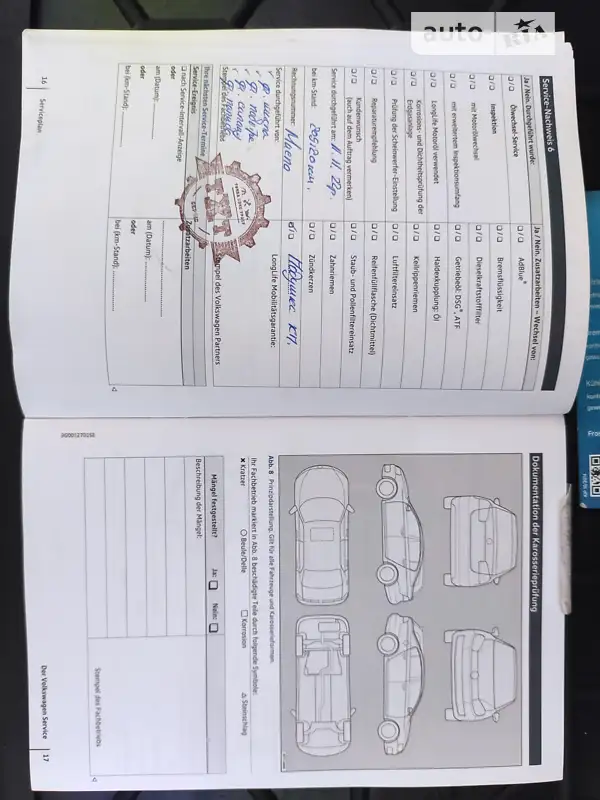 auto RIA
Service-Nachweis 6
Ja / Nein. Durchgeführt wurde:
Ja / Nein. Zusatzarbeiten – Wechsel von:
Ölwechsel-Service
AdBlue®
Inspektion
Bremsflüssigkeit
mit Motorölwechsel
Dieselkraftstofffilter
mit erweitertem Inspektionsumfang
Getriebeöl: DSG®, ATF
LongLife Motoröl verwendet
Haldexkupplung: Öl
Korrosions- und Dichtheitsprüfung der Erdgasanlage
Keilrippenriemen
Prüfung der Scheinwerfer-Einstellung
Luftfiltereinsatz
Reparaturempfehlung
Reifenfüllflasche (Dichtmittel)
Kundenwunsch
(auch auf dem Auftrag vermerken)
Staub- und Pollenfiltereinsatz
Service durchgeführt am: 11.11.24р
Zahnriemen
bei km-Stand: 205120км,
Zündkerzen
Rechnungsnummer: Масло
Подушес КП,
Service durchgeführt von:
LongLife Mobilitätsgarantie:
Stempel des Fachbetriebs
Stempel des Volkswagen Partners
Ihre nächsten Service-Termine
Service-Ereignis
Zusatzarbeiten
nach Service-Intervall-Anzeige
oder
am (Datum):
am (Datum):
oder
oder
bei (km-Stand):
bei (km-Stand):
16 Serviceplan
Dokumentation der Karosserieprüfung
Abb. 8 Prinzipdarstellung. Gilt für alle Fahrzeuge und Karosserieformen.
Ihr Fachbetrieb markiert in Abb. 8 beschädigte Teile durch folgende Symbole:
Kratzer
Beule/Delle
Korrosion
Steinschlag
Mängel festgestellt?
Ja:
Nein:
Beschreibung der Mängel:
Stempel des Fachbetriebs
Der Volkswagen Service 17